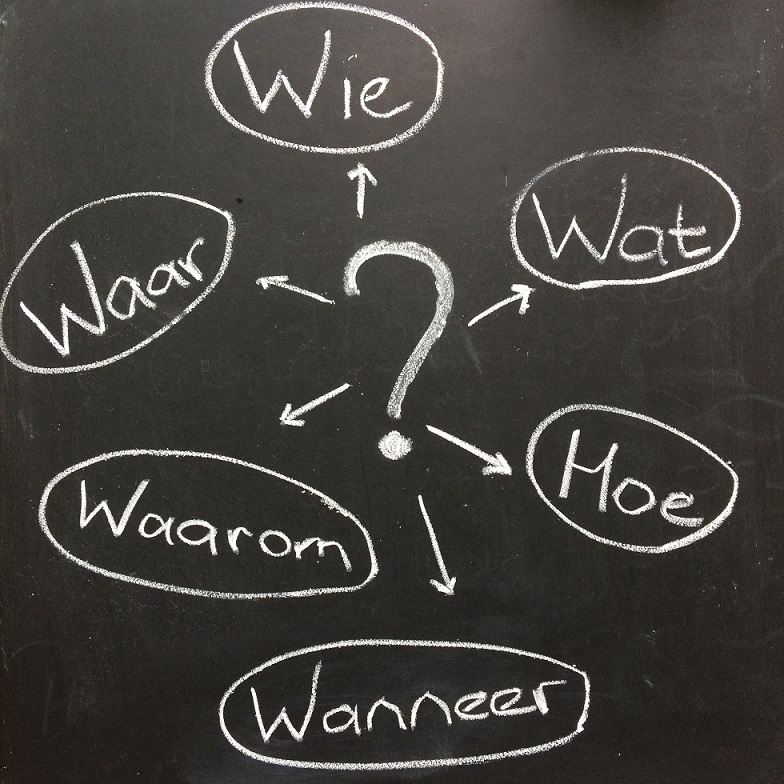 Wie
Wat
Waar
?
Hoe
Waarom
Wanneer